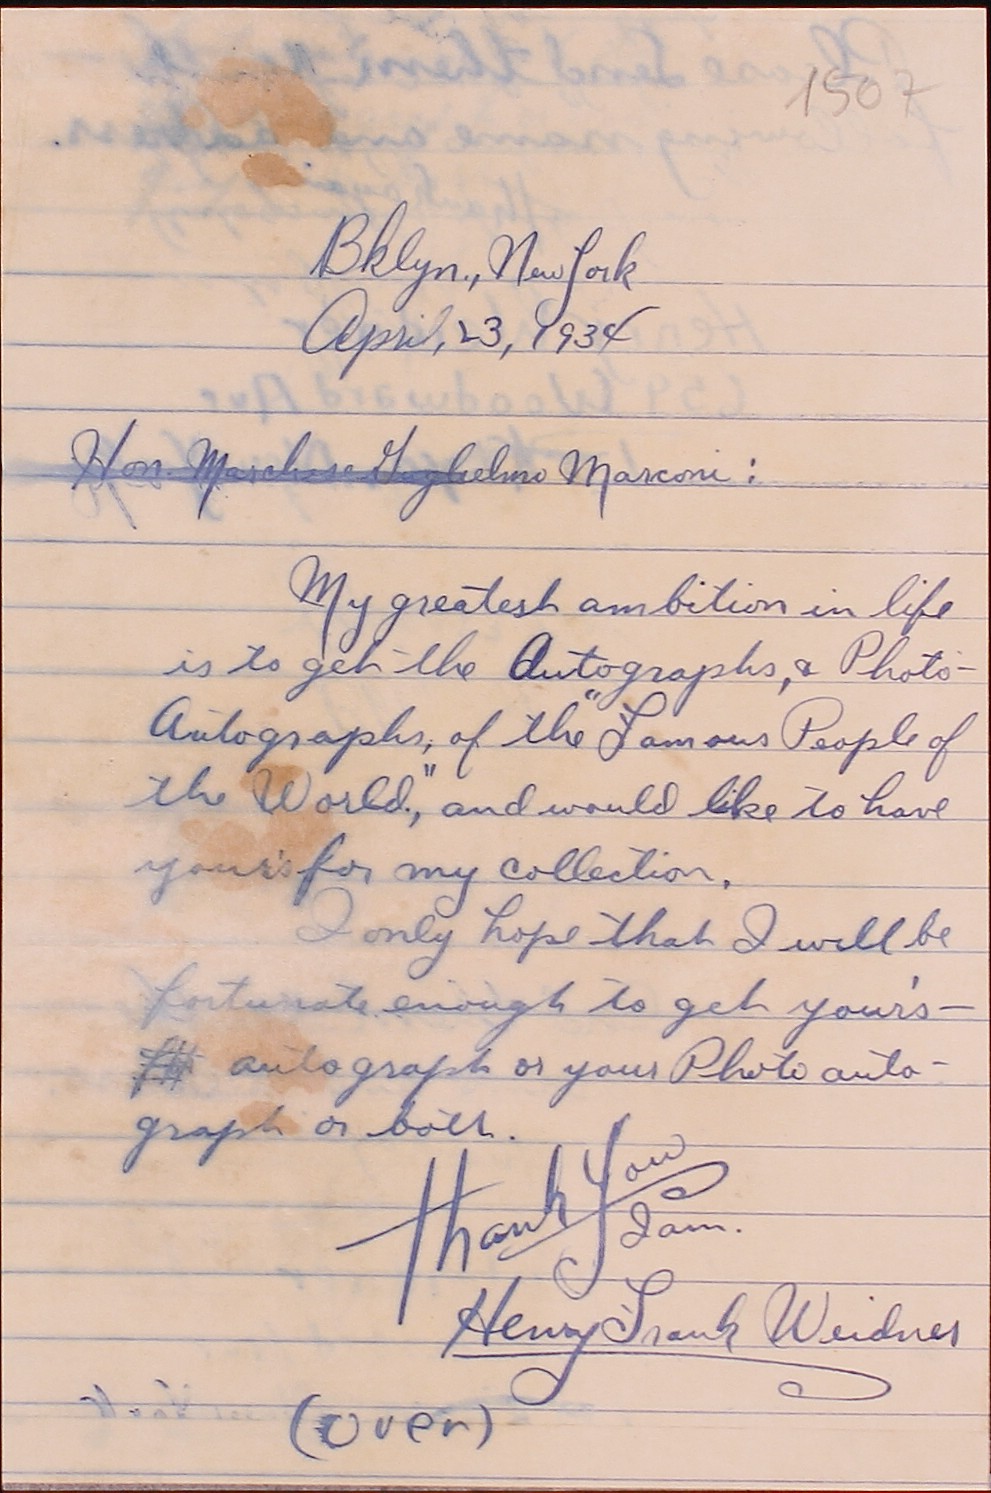 1507
Bklyn., New York
April, 23, 1934
Hon. Marchese Guglielmo Marconi:
My greatest ambition in life
is to get the Autographs, & Photo-
Autographs, of the "Famous People of
the World," and would like to have
your's for my collection.
I only hope that I will be
fortunate enough to get your's-
autograph or your Photo auto-
graph or both.
Thank You
I am.
Henry Frank Weidner
(over)